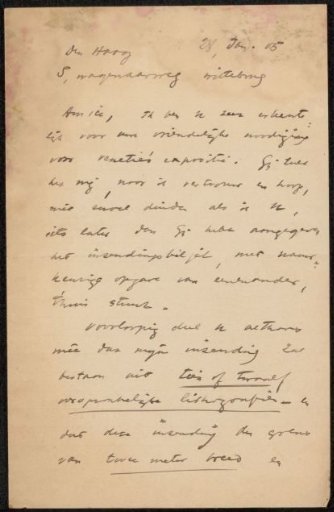 Den Haag 28, Jan. 05
5, wagenaarweg wittebrug
Amice, Ik ben U zeer erkente-
lijk voor uw vriendelijke uitnodiging
voor Venetië's expositie. Gij
het mij, naar ik vertrouw en hoop,
niet euvel duiden als ik U,
iets later dan Gij hebt aangegeven
het inzendingsbiljet, met nauw-
keurige opgave van
thuis stuur.
Voorlopig deel U althans
mee dat mijn inzending zal
bestaan uit tien of twaalf
oorspronkelijke lithografiën — en
dat deze inzending de grens
van twee meter breed en